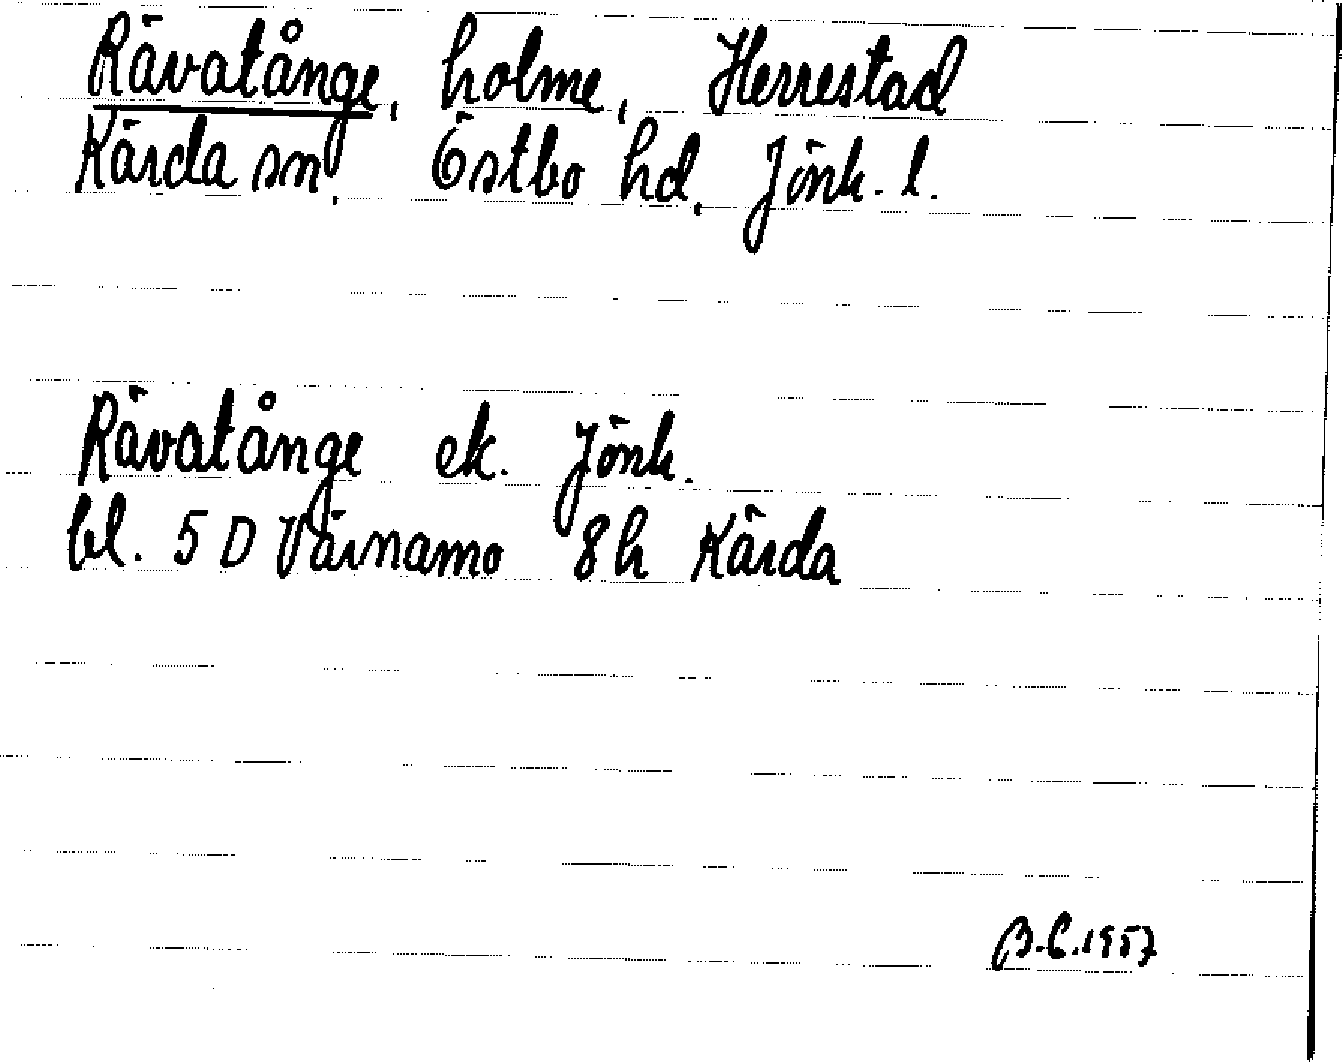 Rävatånge, holme, Herrestad
Kärda sn, Östbo hd, Jönk. l.
Rävatånge ek. Jönk.
bl. 5 D Värnamo 8h Kärda
B.C. 1957